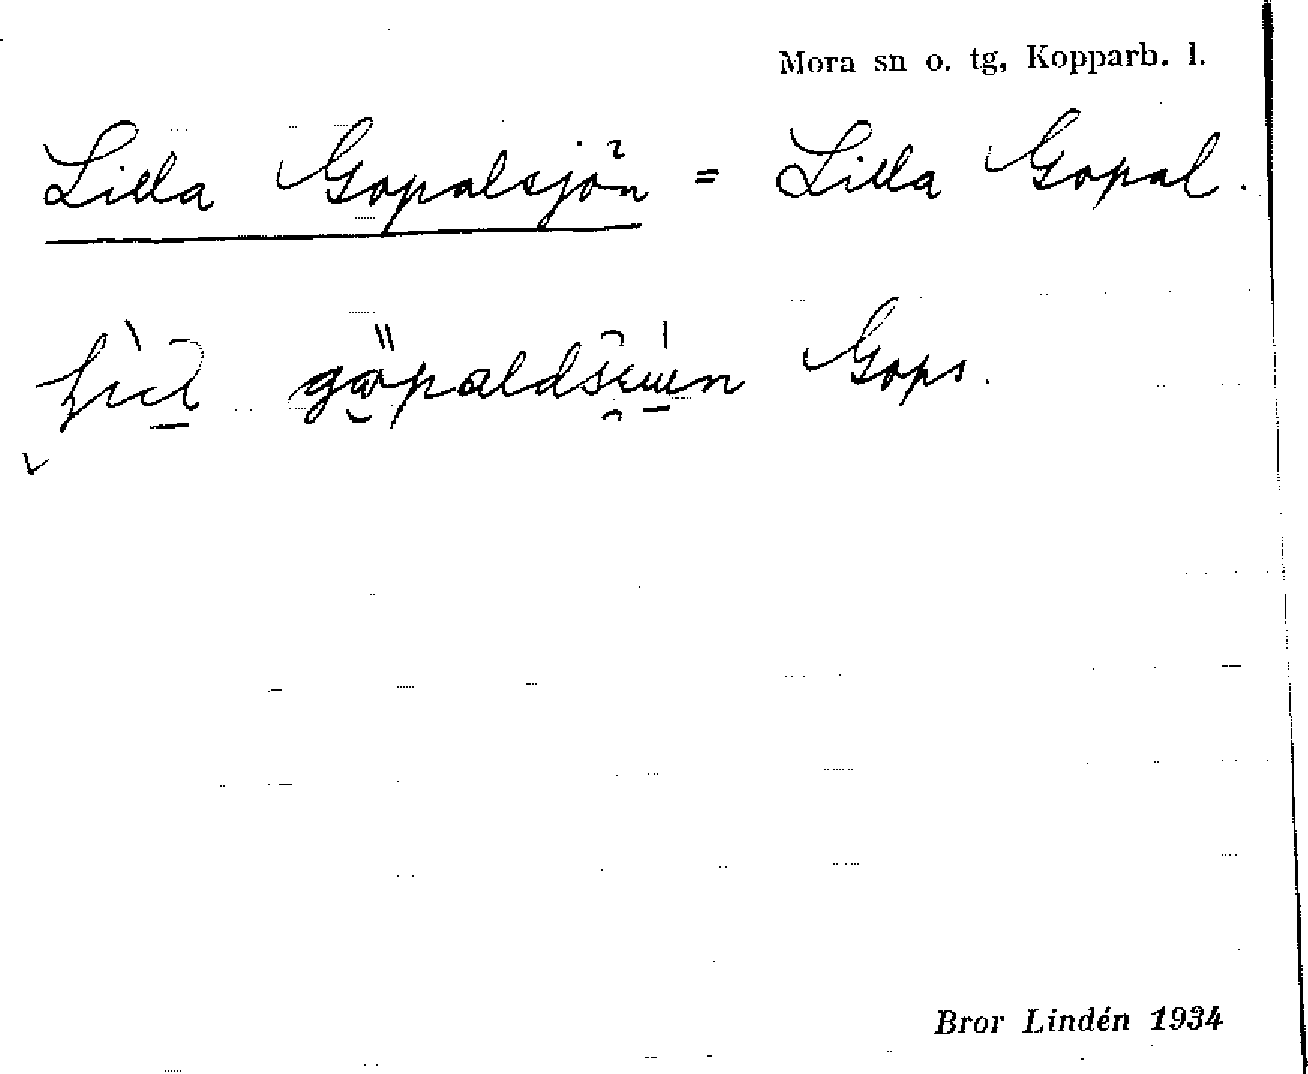 Mora sn o. tg, Kopparb. l.
Lilla Gopalsjön = Lilla Gopal.
Gops.
Bror Lindén 1934